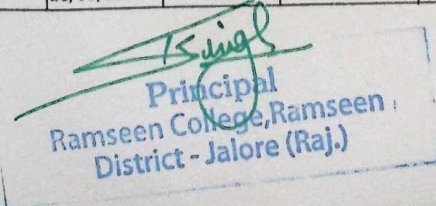 Singh
Principal
Ramseen College,Ramseen
District - Jalore (Raj.)